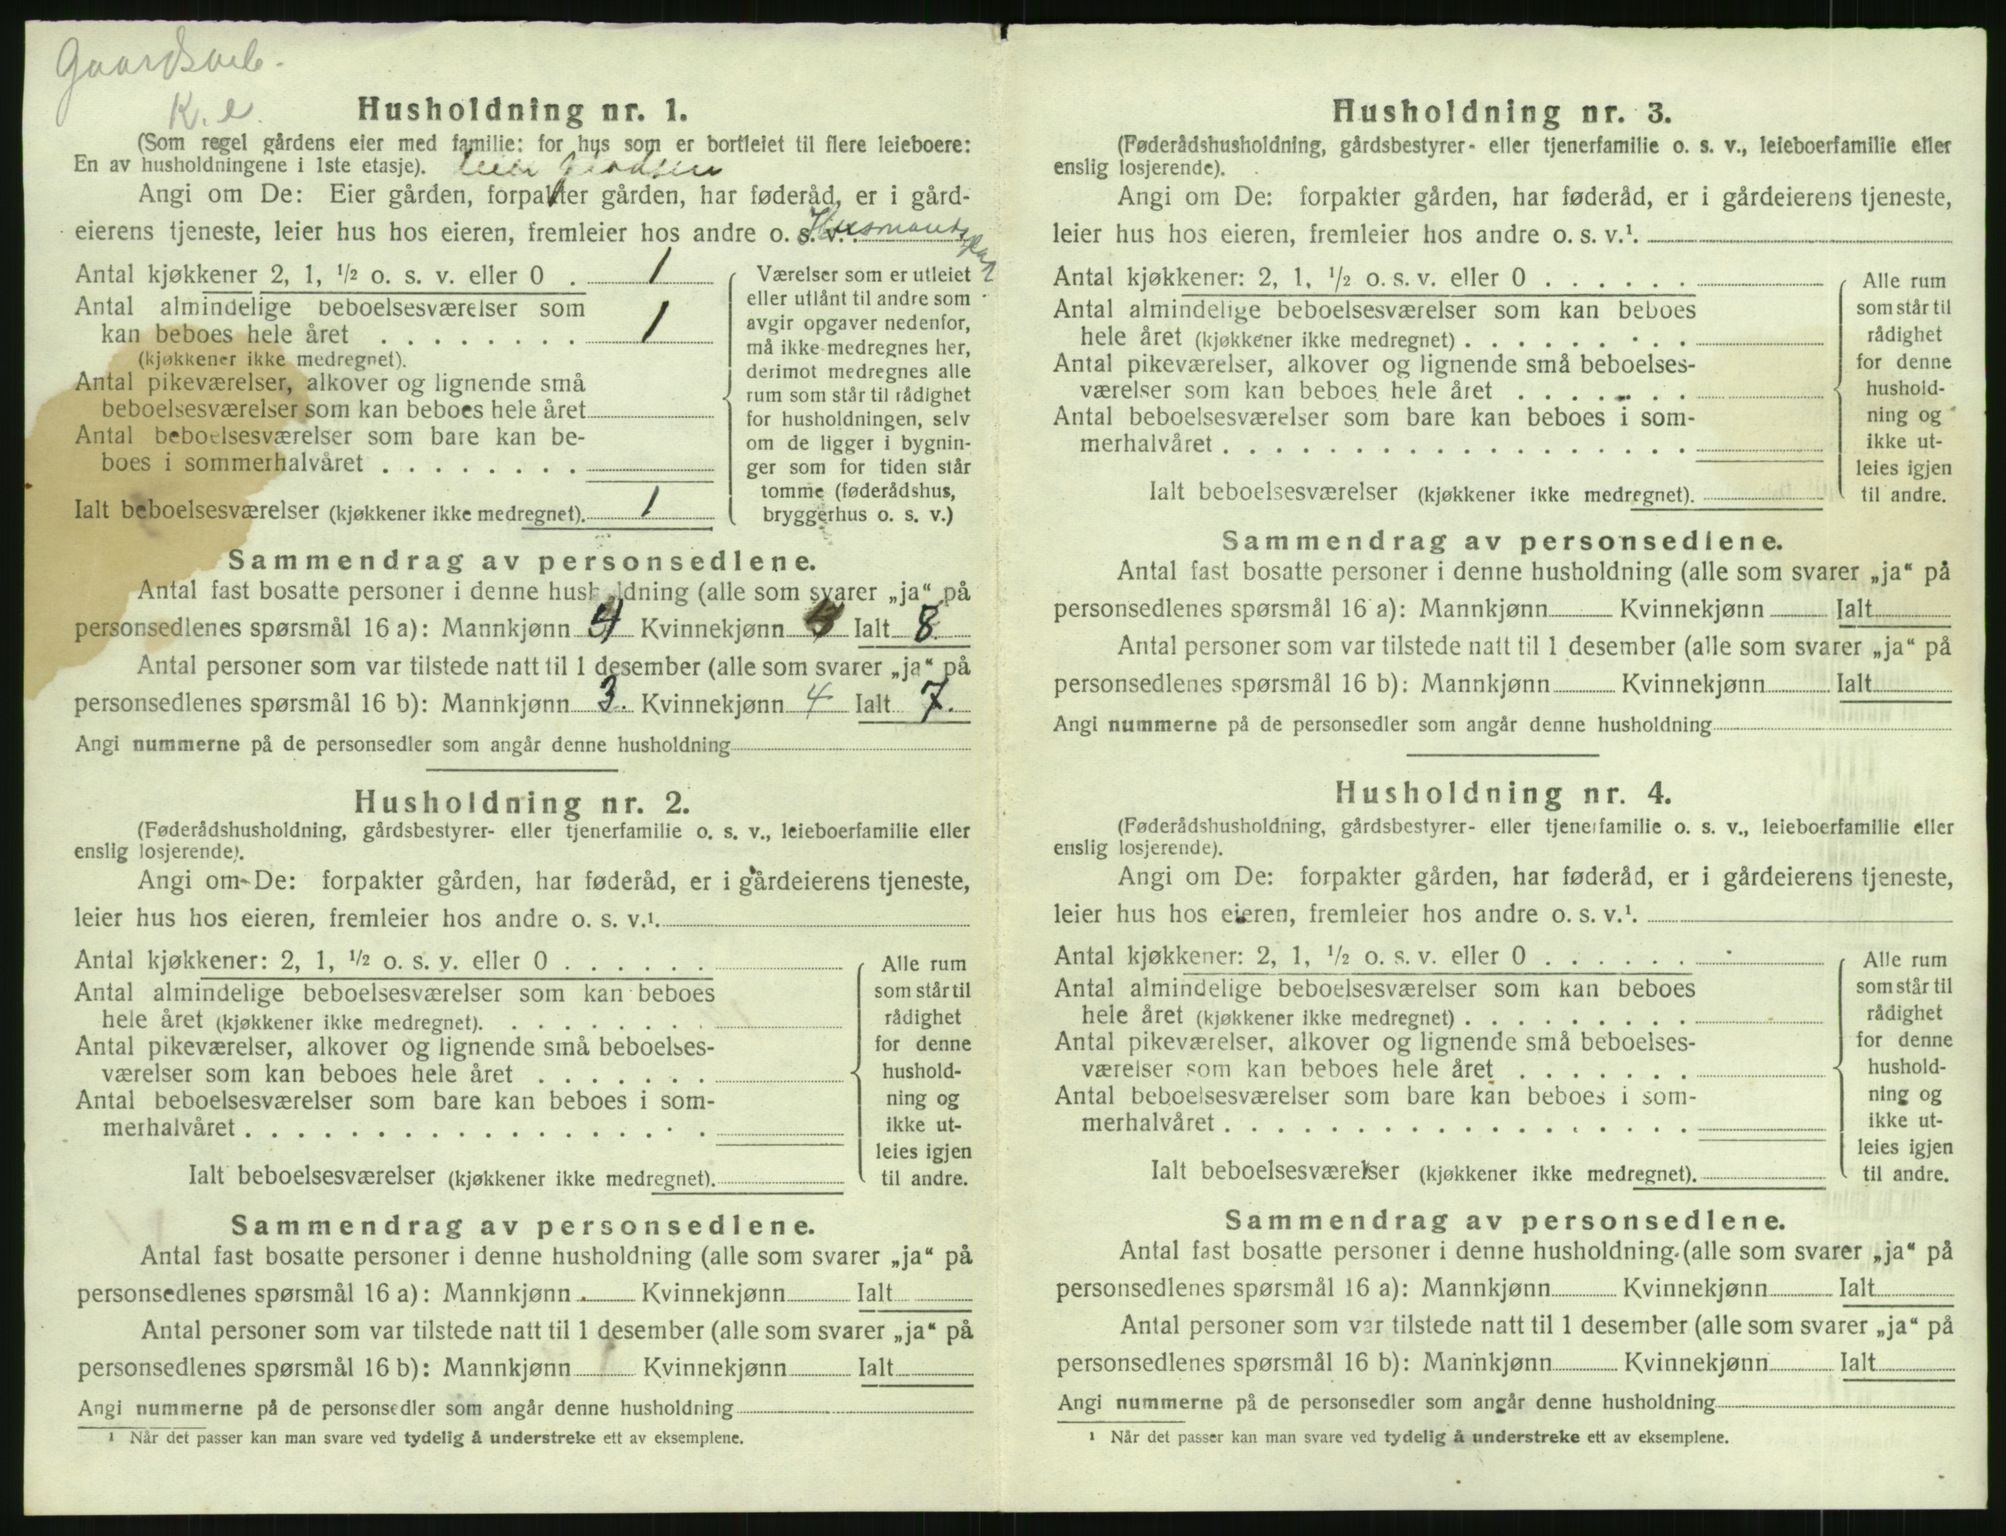 Gaardsarb.
K. e.
Husholdning nr. 1.
(Som regel gårdens eier med familie; for hus som er bortleiet til flere leieboere:
En av husholdningene i 1ste etasje).
Angi om De: Eier gården, forpakter gården, har føderåd, er i gård-
eierens tjeneste, leier hus hos eieren, fremleier hos andre o. s. v. Husmandsplas
Antal kjøkkener 2, 1, ½ o. s. v. eller 0 . 1
Antal almindelige beboelsesværelser som
kan beboes hele året . . . . . . . . 1
(kjøkkener ikke medregnet).
Antal pikeværelser, alkover og lignende små
beboelsesværelser som kan beboes hele året
Antal beboelsesværelser som bare kan be-
boes i sommerhalvåret . . . . . . . .
Ialt beboelsesværelser (kjøkkener ikke medregnet). 1
Værelser som er utleiet
eller utlånt til andre som
avgir opgaver nedenfor,
må ikke medregnes her,
derimot medregnes alle
rum som står til rådighet
for husholdningen, selv
om de ligger i bygnin-
ger som for tiden står
tomme (føderådshus,
bryggerhus o. s. v.)
Sammendrag av personsedlene.
Antal fast bosatte personer i denne husholdning (alle som svarer „ja“ på
personsedlenes spørsmål 16 a): Mannkjønn 4 Kvinnekjønn 4 Ialt 8
Antal personer som var tilstede natt til 1 desember (alle som svarer „ja“ på
personsedlenes spørsmål 16 b): Mannkjønn 3. Kvinnekjønn 4 Ialt 7.
Angi nummerne på de personsedler som angår denne husholdning
Husholdning nr. 2.
(Føderådshusholdning, gårdsbestyrer- eller tjenerfamilie o. s. v., leieboerfamilie eller
enslig losjerende).
Angi om De: forpakter gården, har føderåd, er i gårdeierens tjeneste,
leier hus hos eieren, fremleier hos andre o. s. v.¹.
Antal kjøkkener: 2, 1, ½ o. s. v. eller 0 . . . . . .
Antal almindelige beboelsesværelser som kan beboes
hele året (kjøkkener ikke medregnet). . . . . . . . .
Antal pikeværelser, alkover og lignende små beboelses-
værelser som kan beboes hele året . . . . . . .
Antal beboelsesværelser som bare kan beboes i som-
merhalvåret . . . . . . . . . . . . . . . . . .
Ialt beboelsesværelser (kjøkkener ikke medregnet).
Alle rum
som står til
rådighet
for denne
hushold-
ning og
ikke ut-
leies igjen
til andre.
Sammendrag av personsedlene.
Antal fast bosatte personer i denne husholdning (alle som svarer „ja“ på
personsedlenes spørsmål 16 a): Mannkjønn Kvinnekjønn Ialt
Antal personer som var tilstede natt til 1 desember (alle som svarer „ja“ på
personsedlenes spørsmål 16 b): Mannkjønn Kvinnekjønn Ialt
Angi nummerne på de personsedler som angår denne husholdning
¹ Når det passer kan man svare ved tydelig å understreke ett av eksemplene.
Husholdning nr. 3.
(Føderådshusholdning, gårdsbestyrer- eller tjenerfamilie o. s. v., leieboerfamilie eller
enslig losjerende).
Angi om De: forpakter gården, har føderåd, er i gårdeierens tjeneste,
leier hus hos eieren, fremleier hos andre o. s. v.¹.
Antal kjøkkener: 2, 1, ½ o. s. v. eller 0 . . . . . .
Antal almindelige beboelsesværelser som kan beboes
hele året (kjøkkener ikke medregnet) . . . . . . . . .
Antal pikeværelser, alkover og lignende små beboelses-
værelser som kan beboes hele året . . . . . . .
Antal beboelsesværelser som bare kan beboes i som-
merhalvåret . . . . . . . . . . . . . . . . . .
Ialt beboelsesværelser (kjøkkener ikke medregnet).
Alle rum
som står til
rådighet
for denne
hushold-
ning og
ikke ut-
leies igjen
til andre.
Sammendrag av personsedlene.
Antal fast bosatte personer i denne husholdning (alle som svarer „ja“ på
personsedlenes spørsmål 16 a): Mannkjønn Kvinnekjønn Ialt
Antal personer som var tilstede natt til 1 desember (alle som svarer „ja“ på
personsedlenes spørsmål 16 b): Mannkjønn Kvinnekjønn Ialt
Angi nummerne på de personsedler som angår denne husholdning
Husholdning nr. 4.
(Føderådshusholdning, gårdsbestyrer- eller tjenerfamilie o. s. v., leieboerfamilie eller
enslig losjerende).
Angi om De: forpakter gården, har føderåd, er i gårdeierens tjeneste,
leier hus hos eieren, fremleier hos andre o. s. v.¹.
Antal kjøkkener: 2, 1, ½ o. s. v. eller 0 . . . . . .
Antal almindelige beboelsesværelser som kan beboes
hele året (kjøkkener ikke medregnet) . . . . . . . . .
Antal pikeværelser, alkover og lignende små beboelses-
værelser som kan beboes hele året . . . . . . .
Antal beboelsesværelser som bare kan beboes i som-
merhalvåret . . . . . . . . . . . . . . . . . .
Ialt beboelsesværelser (kjøkkener ikke medregnet).
Alle rum
som står til
rådighet
for denne
hushold-
ning og
ikke ut-
leies igjen
til andre.
Sammendrag av personsedlene.
Antal fast bosatte personer i denne husholdning (alle som svarer „ja“ på
personsedlenes spørsmål 16 a): Mannkjønn Kvinnekjønn Ialt
Antal personer som var tilstede natt til 1 desember (alle som svarer „ja“ på
personsedlenes spørsmål 16 b): Mannkjønn Kvinnekjønn Ialt
Angi nummerne på de personsedler som angår denne husholdning
¹ Når det passer kan man svare ved tydelig å understreke ett av eksemplene.